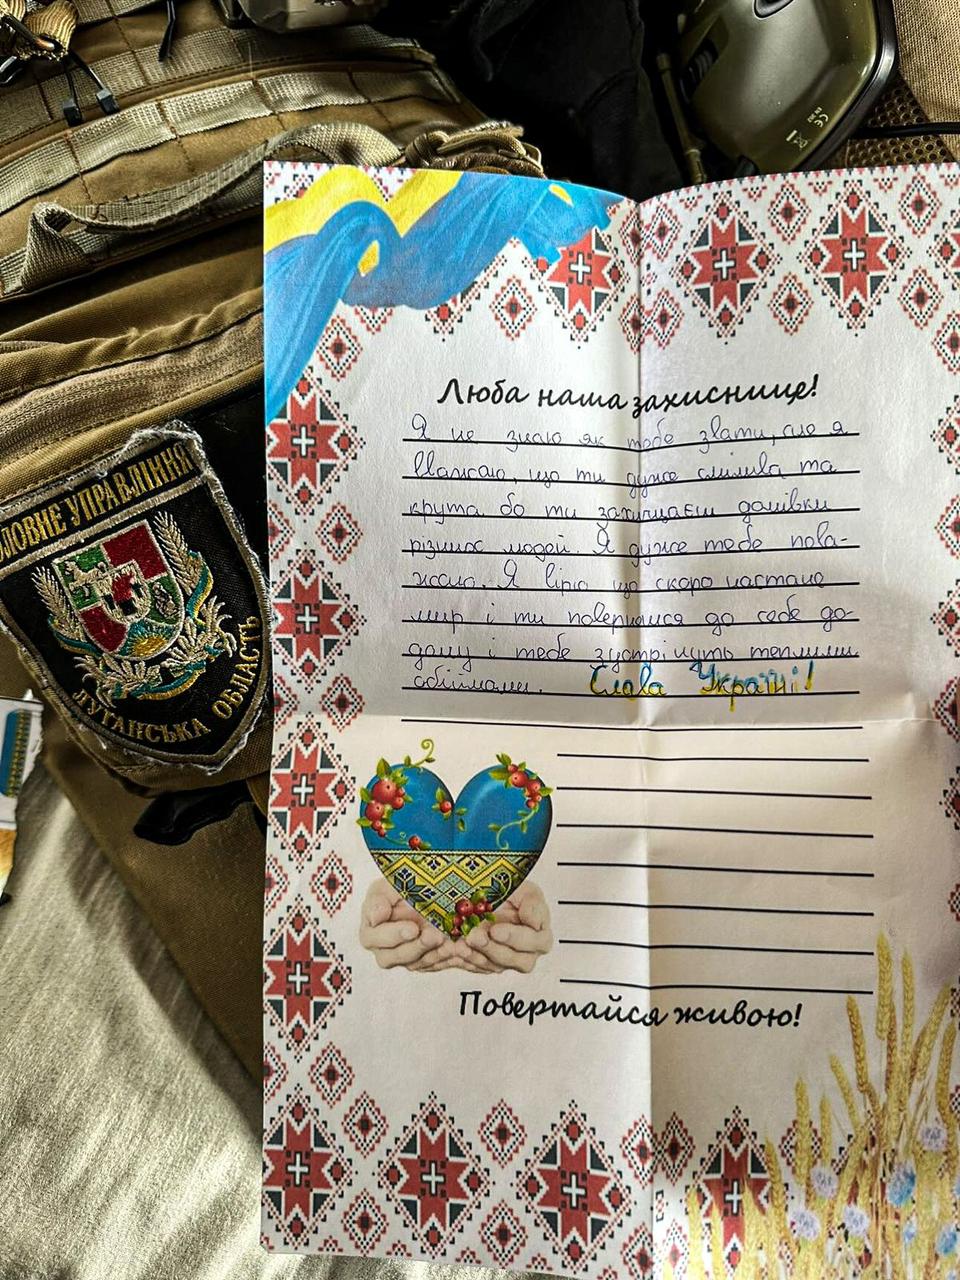 ГОЛОВНЕ УПРАВЛІННЯ
ЛУГАНСЬКА ОБЛАСТЬ
Люба наша захиснице!
Я не знаю як тебе звати, але я
вважаю, що ти дуже смілива та
крута бо ти захищаєш домівки
різних людей. Я дуже тебе пова-
жаю. Я вірю що скоро настане
мир і ти повернишся до себе до-
дому і тебе зустрінуть теплими
обіймами. Слава Україні!
Повертайся живою!